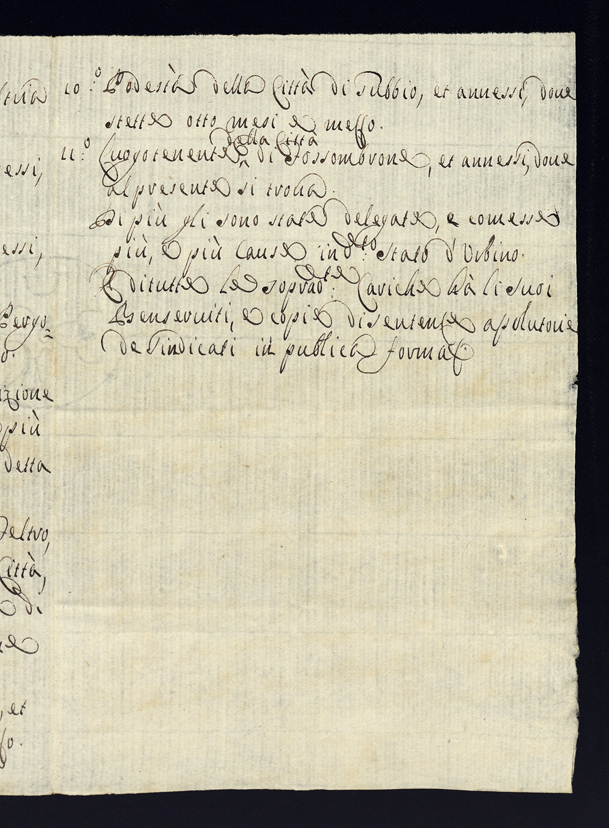 stità
essi,
essi,
Pergo=
o.
azione
più
detta
Feltro,
Città,
di
, et
10.º Podestà della Città di Gubbio, et annessi, doue
stette otto mesi e messo.
11.º Luogotenente della Città di Fossombrone, et annessi, doue
al presente si troua.
Di più gli sono state delegate, e comesse
più, e più Cause in d.to Stato d'Vrbino.
E di tutte le soprad.te Cariche hà li suoi
Benseruiti, e copie di sentenze assolutorie
de Sindicati in publica forma